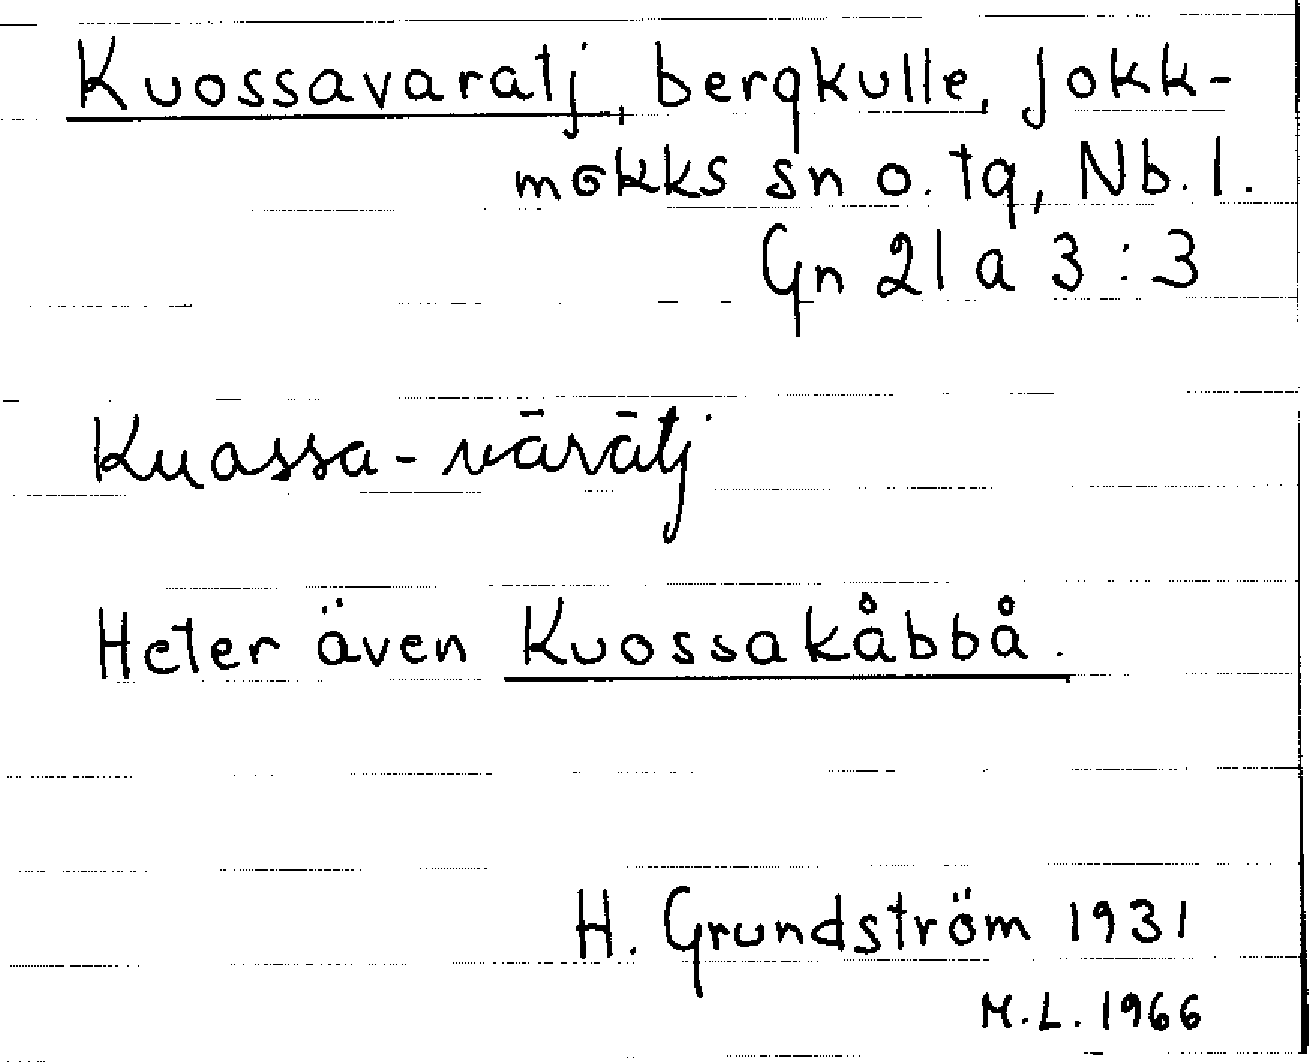 Kuossavaratj, bergkulle, Jokk-
mokks sn o. tg, Nb. l.
Gn 21 a 3 : 3
Kuossa-vārātj
Heter även Kuossakåbbå.
H. Grundström 1931
M.L. 1966